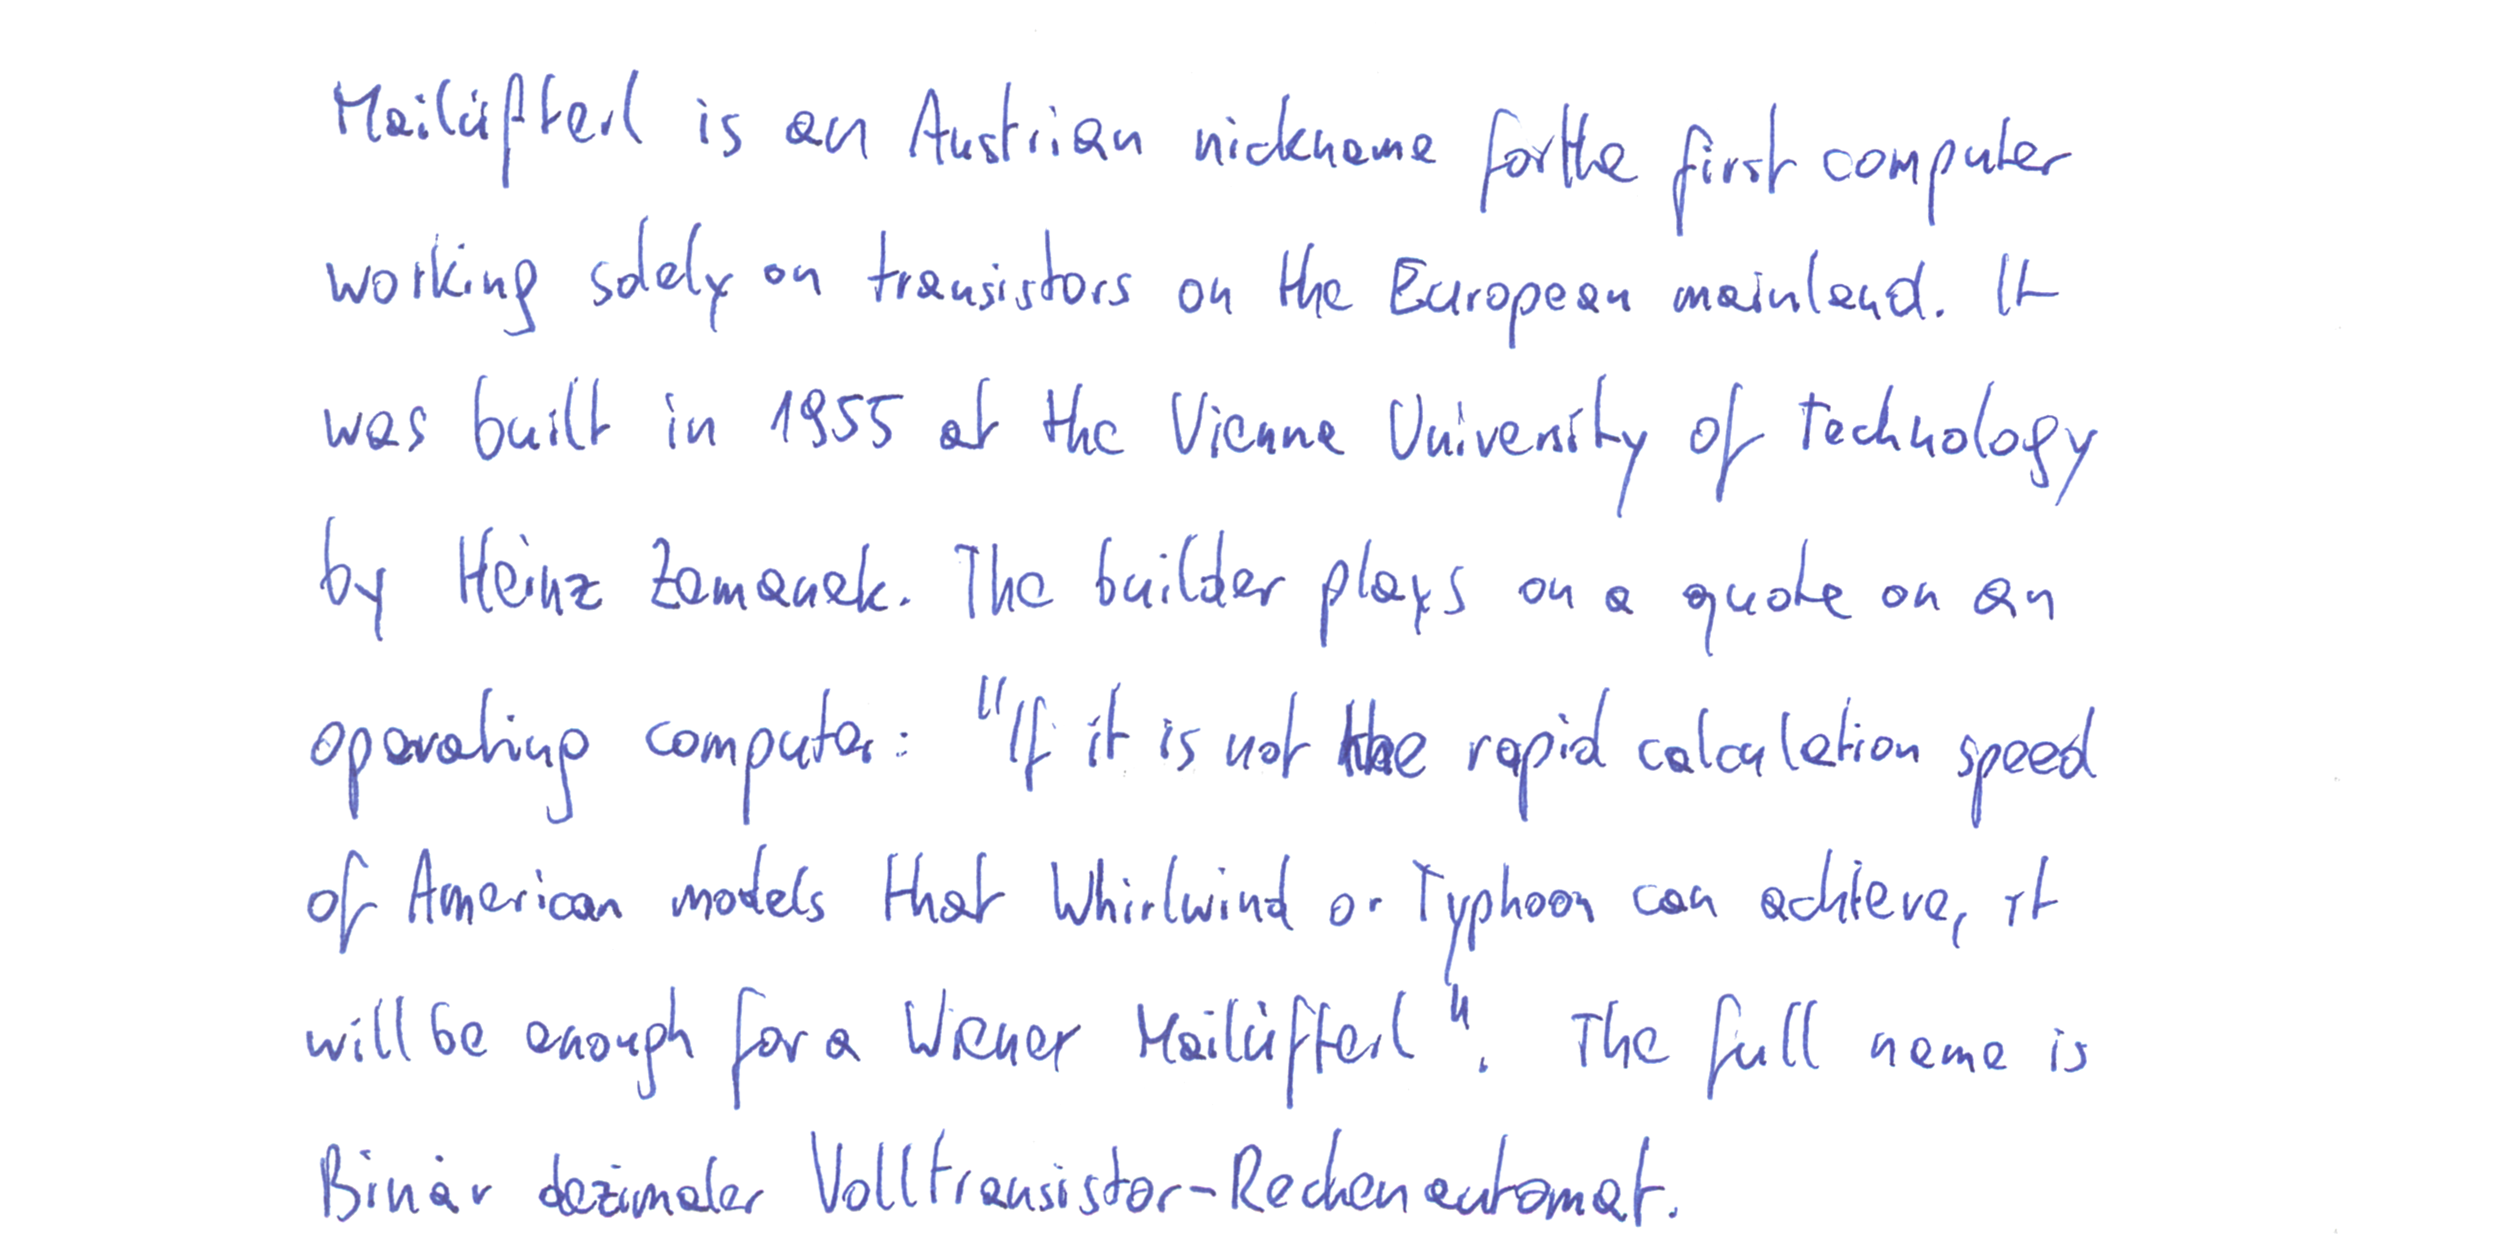 Mailüfterl is an Austrian nickname for the first computer
working solely on transistors on the European mainland. It
was built in 1955 at the Vienna University of Technology
by Heinz Zemanek. The builder plays on a quote on an
operating computer: "If it is not the rapid calculation speed
of American models that Whirlwind or Typhoon can achieve, it
will be enough for a Wiener Mailüfterl". The full name is
Binär dezimaler Volltransistor-Rechenautomat.